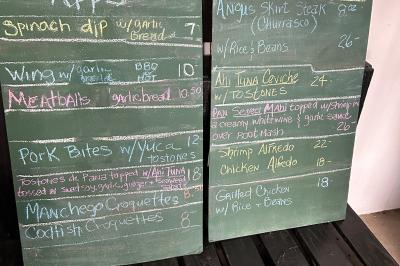 Apps
Spinach dip w/garlic Bread 7
Wing w/garlic Bread BBQ HOT 10
Meatballs garlicbread 10.50
Pork Bites w/Yuca 12
tostones
Tostones de Pana topped w/Ahi Tuna 18
tossed w/ sweet soy, garlic, ginger + seaweed salad
Manchego Croquettes 8.50
Codfish Croquettes 8
Angus Skirt Steak 8oz
(Churrasco)
w/Rice & Beans 26-
Ahi Tuna Ceviche 24-
w/ TOSTONES
Pan Seared Mahi topped w/shrimp in
a creamy white wine & garlic sauce
over Root Mash 26-
Shrimp Alfredo 22-
Chicken Alfredo 18-
Grilled Chicken 18-
w/ Rice + Beans